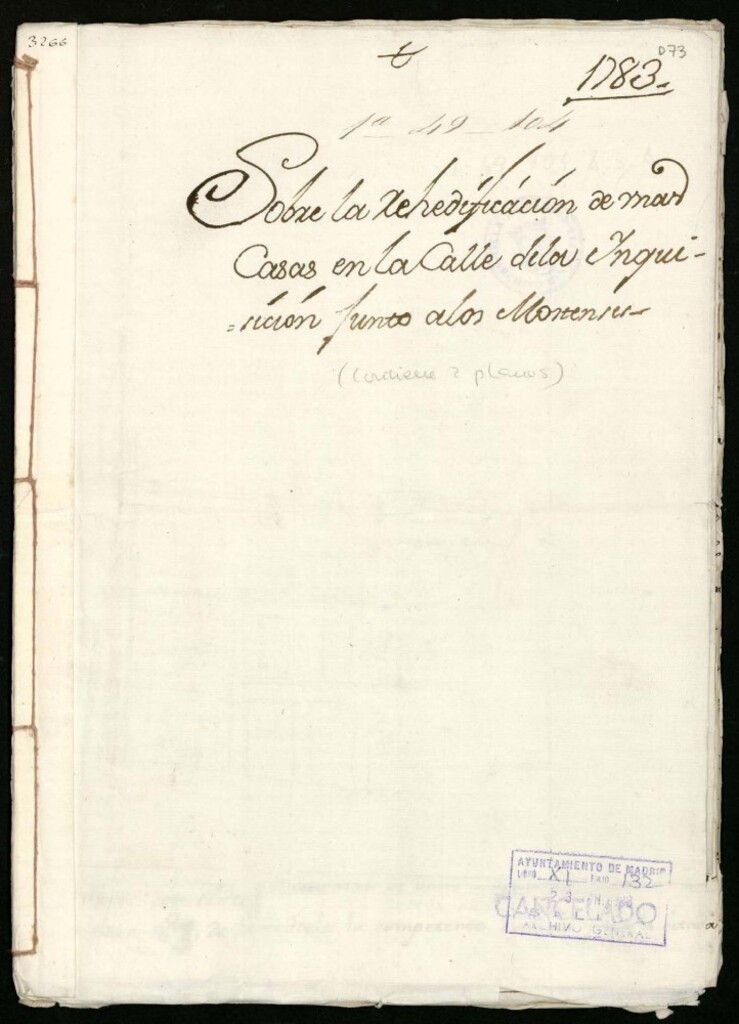 3266
D73
1783.
1ª 49 - 104
Sobre la Rehedificación de unas
Casas en la Calle dela Inqui-
=sición Junto alos Mostenses
(Contiene 2 planos)
AYUNTAMIENTO DE MADRID
XI 132
CANCELADO
ARCHIVO GENERAL